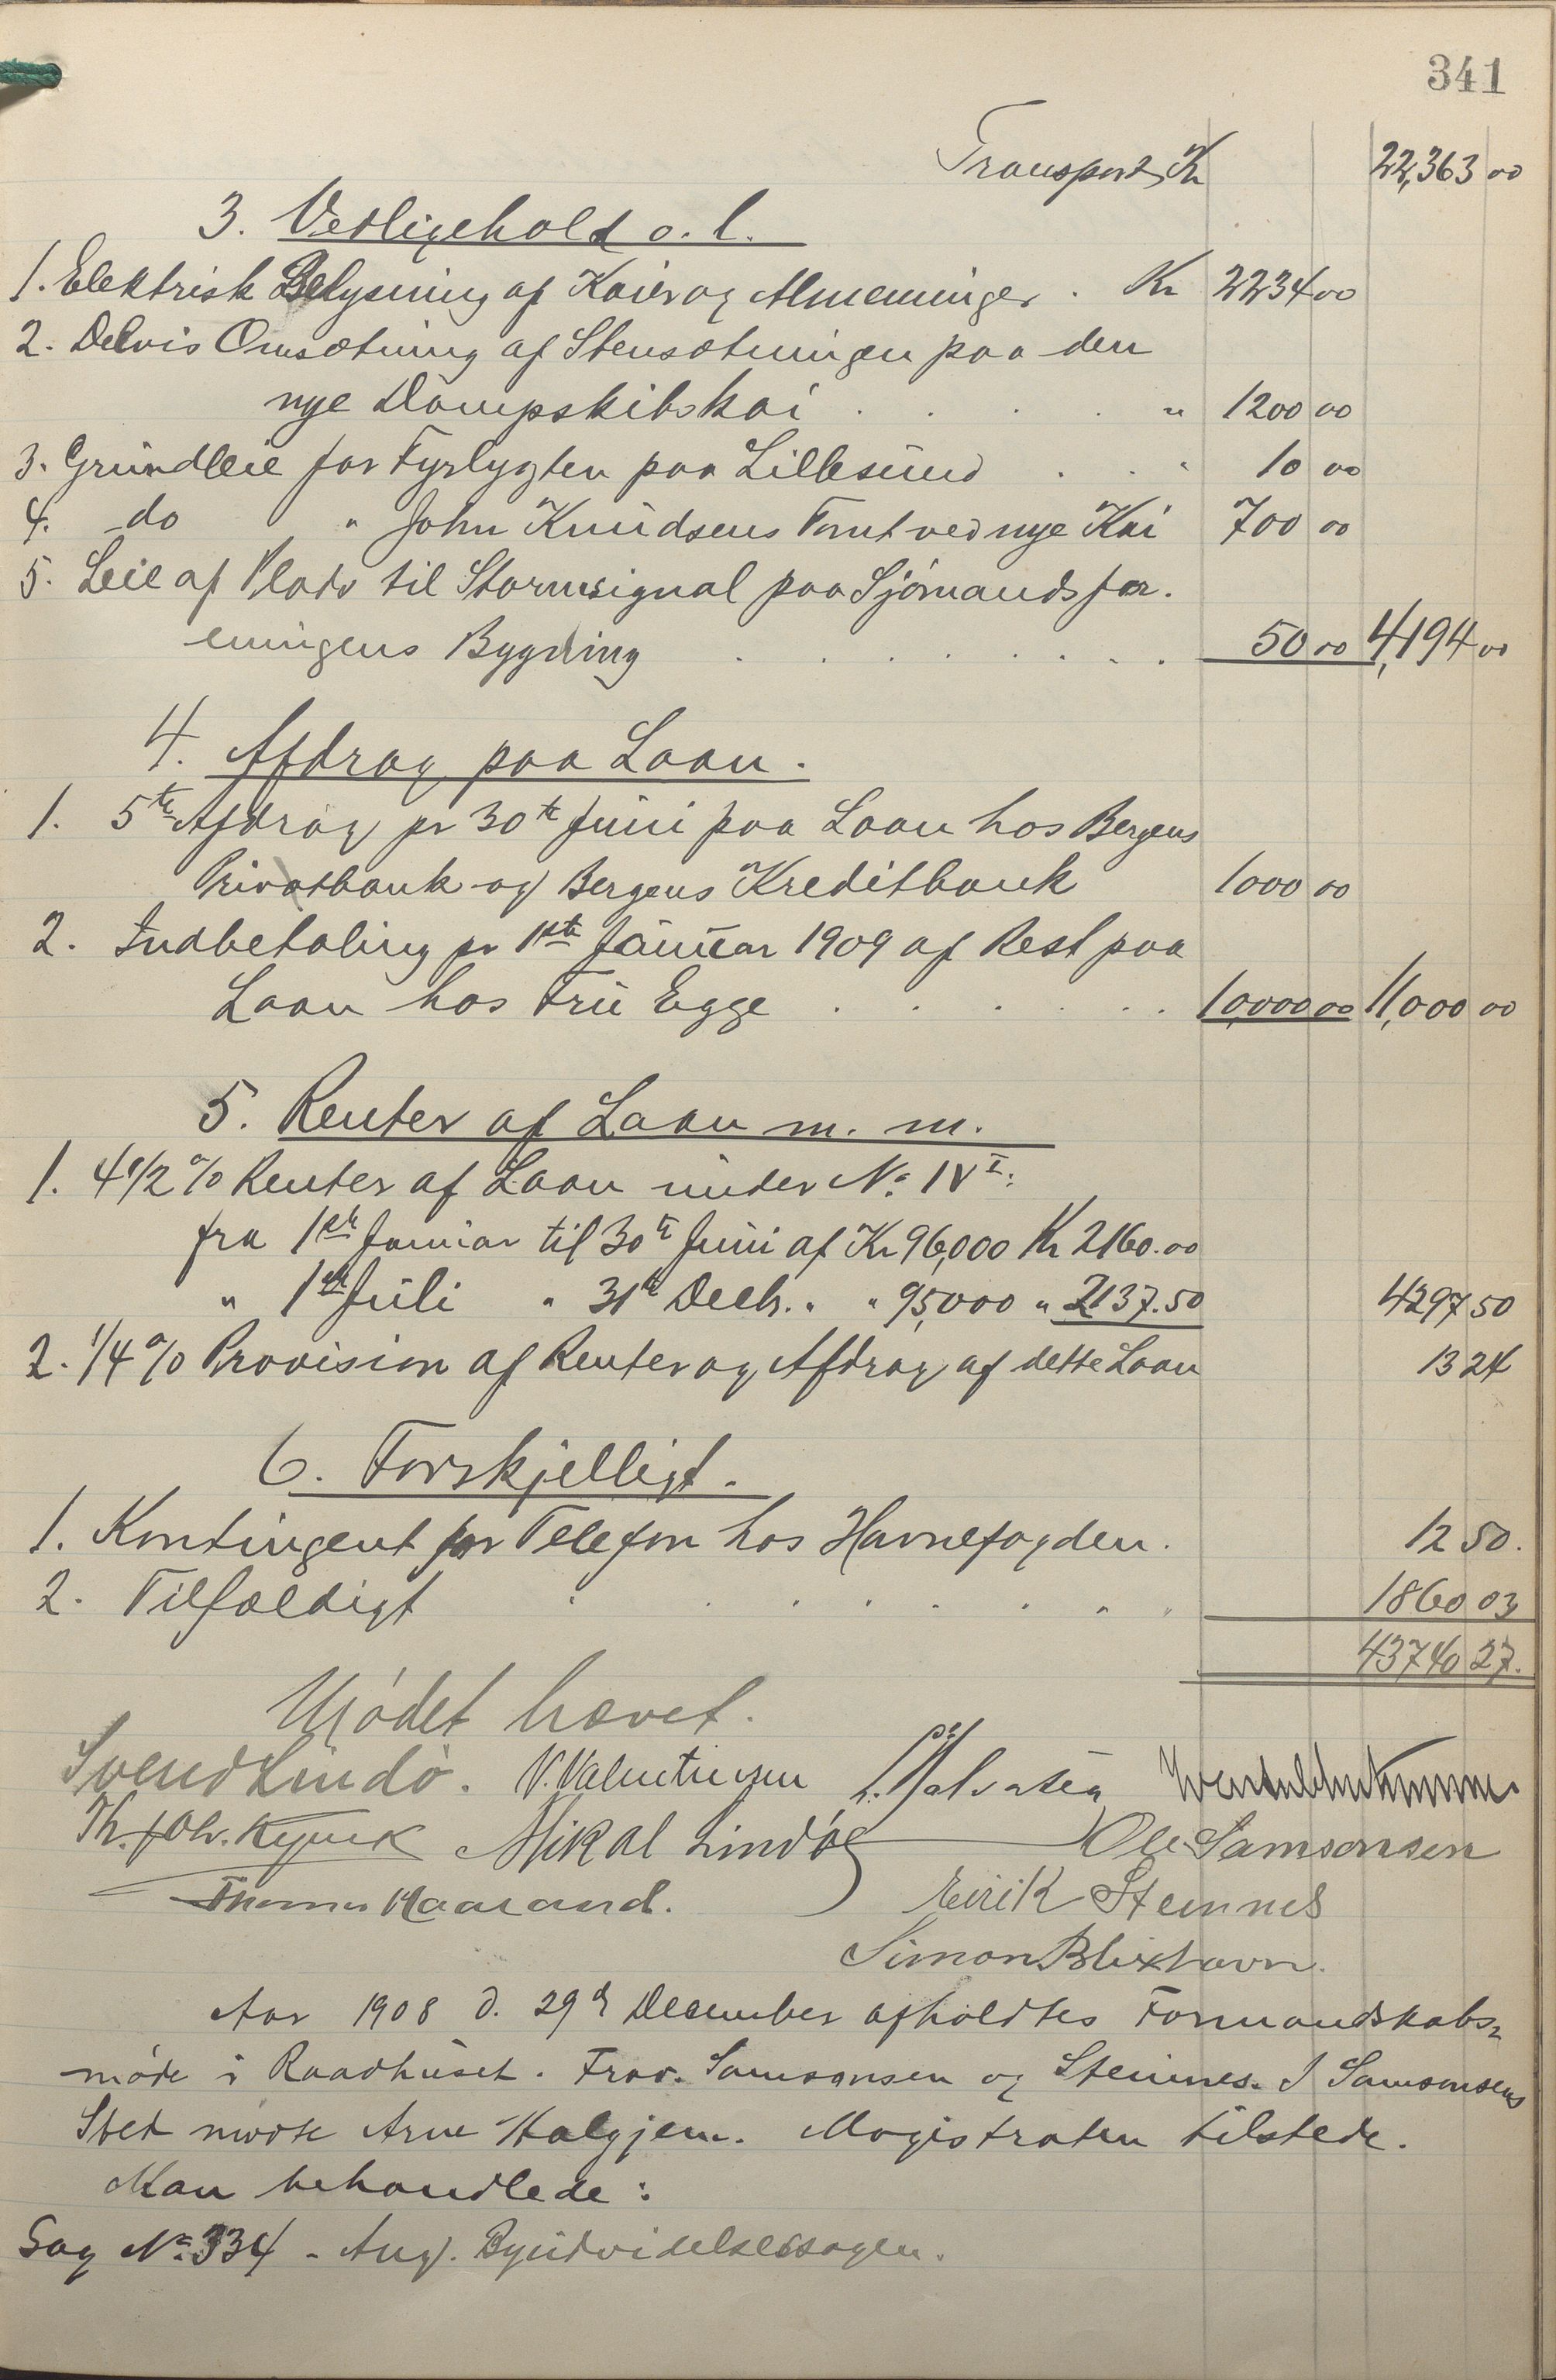 341
Transport, Kr 22,363 00
3. Vedligehold o. l.
1. Elektrisk Belysning af Kaier og Almenninger . Kr 2234 00
2. Delvis Omsætning af Stensætningen paa den
nye Dampskibskai . . . . " 1200 00
3. Grundleie for Fyrlygten paa Lillesund . . . 10 00
4. do " John Knudsens Tomt ved nye Kai 700 00
5. Leie af Plads til Stormsignal paa Sjømandsfor-
eningens Bygning . . . . . . . . 50 00 4,194 00
4. Afdrag paa Laan.
1. 5te Afdrag pr 30te Juni paa Laan hos Bergens
Privatbank og Bergens Kreditbank 1000 00
2. Indbetaling pr 1ste Januar 1909 af Rest paa
Laan hos Fru Egge . . . . . . 10,000 00 11,000 00
5. Renter af Laan m. m.
1. 4 1/2 % Renter af Laan under No IV I:
fra 1ste Januar til 30te Juni af Kr 96,000 Kr 2160.00
" 1ste Juli " 31te Decbr. " " 95,000 " 2137.50 4297 50
2. 1/4 % Provision af Renter og Afdrag af dette Laan 13 24
6. Forskjelligt.
1. Kontingent for Telefon hos Havnefogden. 12 50.
2. Tilfældigt . . . . . . . . 1860 03
43740 27.
Mødet hævet.
Svend Lindø. V. Valentinsen
Mikal Lindøe Ole Samsonsen
Thomas Haaland. Eirik Stemnes
Simon Blixhavn.
Aar 1908 d. 29de December afholdtes Formandskabs-
møde i Raadhuset. Frav. Samsonsen og Stemnes. I Samsonsens
Sted mødte Arne Halgjem. Magistraten tilstede.
Man behandlede:
Sag No 334 - Ang. Byudvidelsessagen.